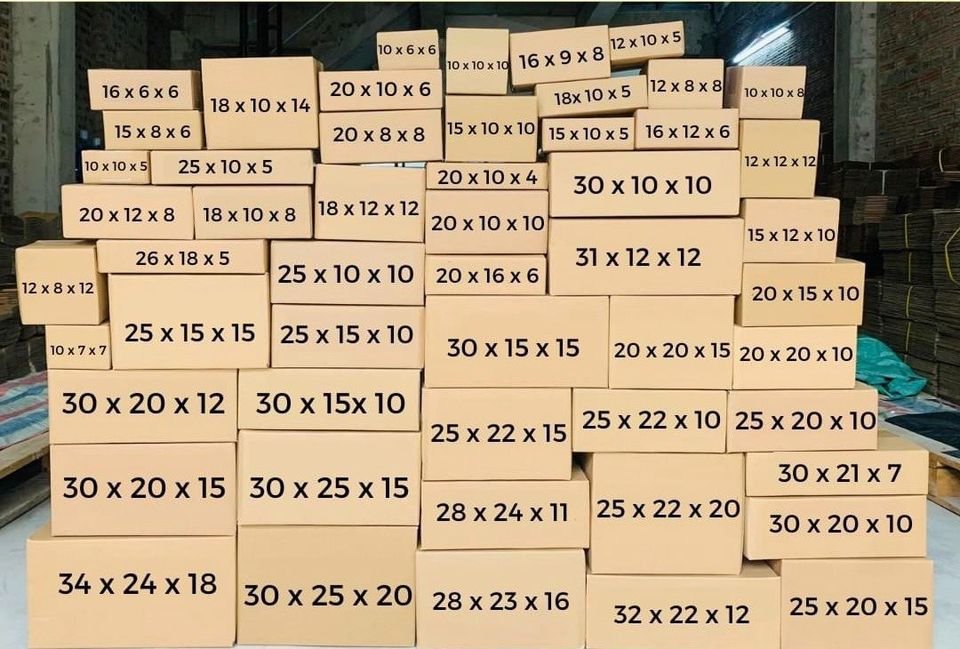 10 x 6 x 6
10 x 10 x 10
16 x 9 x 8
12 x 10 x 5
16 x 6 x 6
18 x 10 x 14
20 x 10 x 6
18x 10 x 5
12 x 8 x 8
10 x 10 x 8
15 x 8 x 6
20 x 8 x 8
15 x 10 x 10
15 x 10 x 5
16 x 12 x 6
12 x 12 x 12
10 x 10 x 5
25 x 10 x 5
20 x 10 x 4
30 x 10 x 10
20 x 12 x 8
18 x 10 x 8
18 x 12 x 12
20 x 10 x 10
15 x 12 x 10
26 x 18 x 5
31 x 12 x 12
12 x 8 x 12
25 x 10 x 10
20 x 16 x 6
20 x 15 x 10
25 x 15 x 15
25 x 15 x 10
10 x 7 x 7
30 x 15 x 15
20 x 20 x 15
20 x 20 x 10
30 x 20 x 12
30 x 15x 10
25 x 22 x 15
25 x 22 x 10
25 x 20 x 10
30 x 20 x 15
30 x 25 x 15
28 x 24 x 11
25 x 22 x 20
30 x 21 x 7
30 x 20 x 10
34 x 24 x 18
30 x 25 x 20
28 x 23 x 16
32 x 22 x 12
25 x 20 x 15